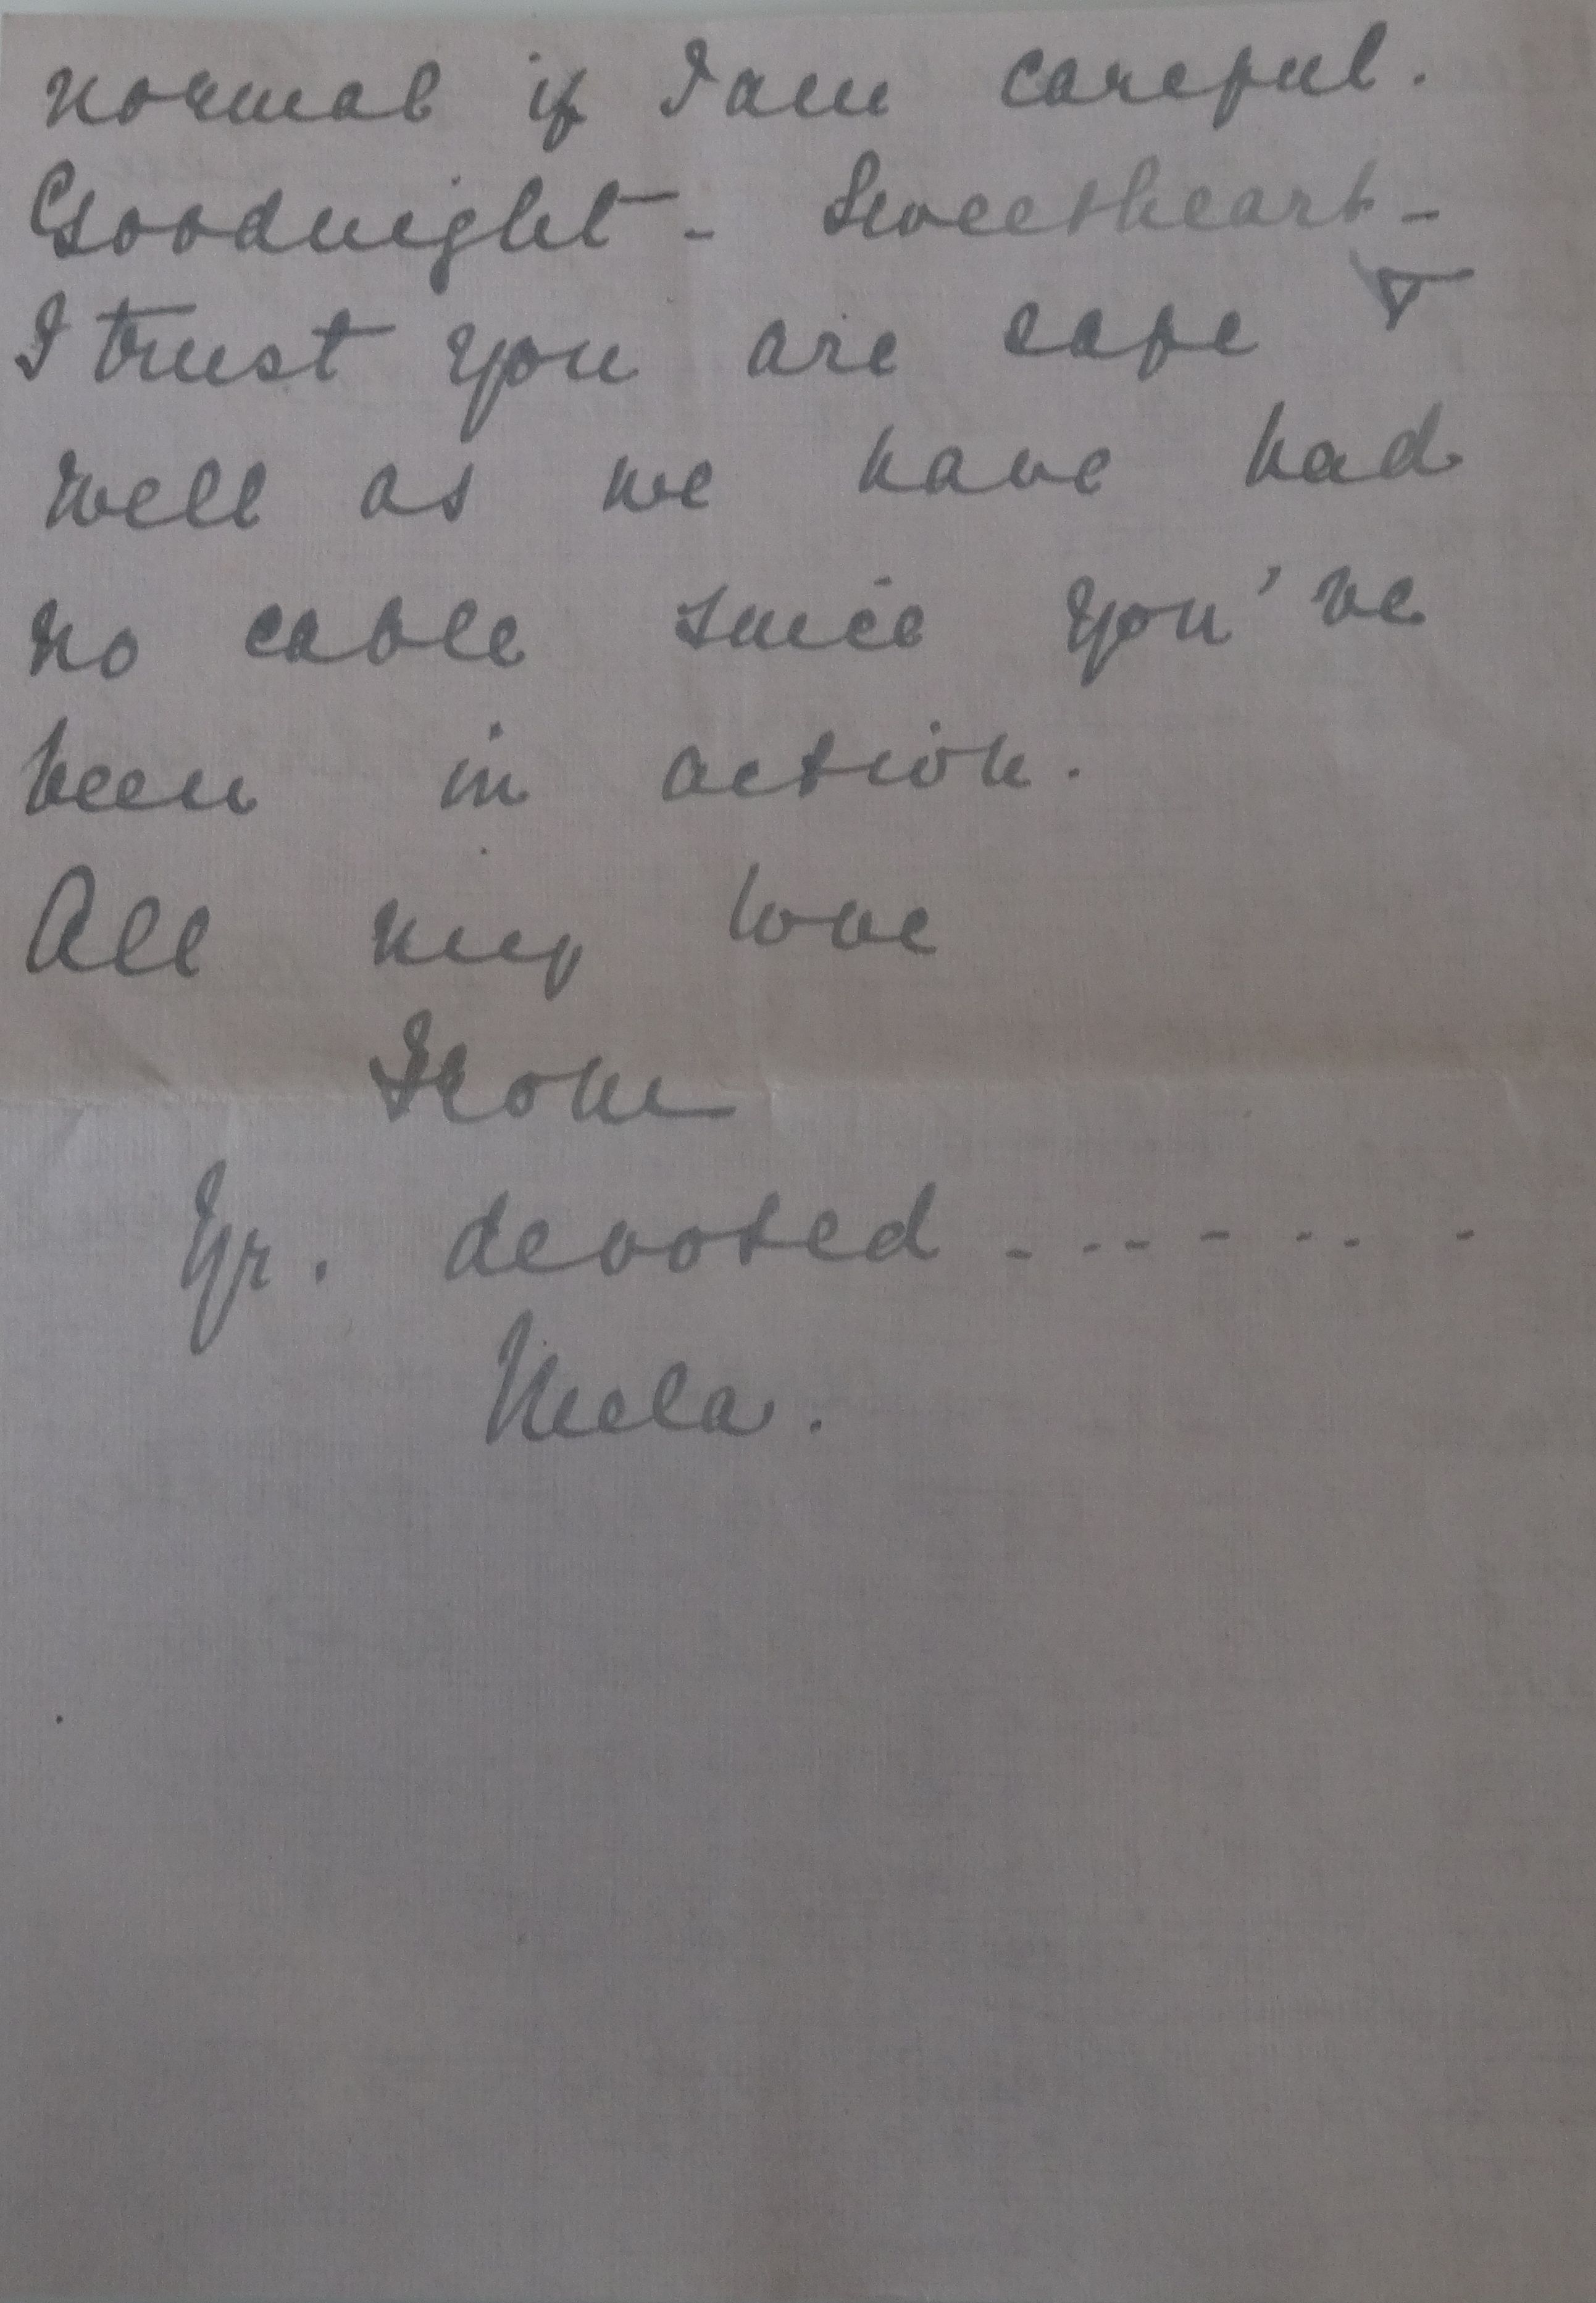 normal if I am careful.
Goodnight - Sweetheart -
I trust you are safe &
well as we have had
no cable since you've
been in action.
All my love
From
Yr. devoted - - - - - - -